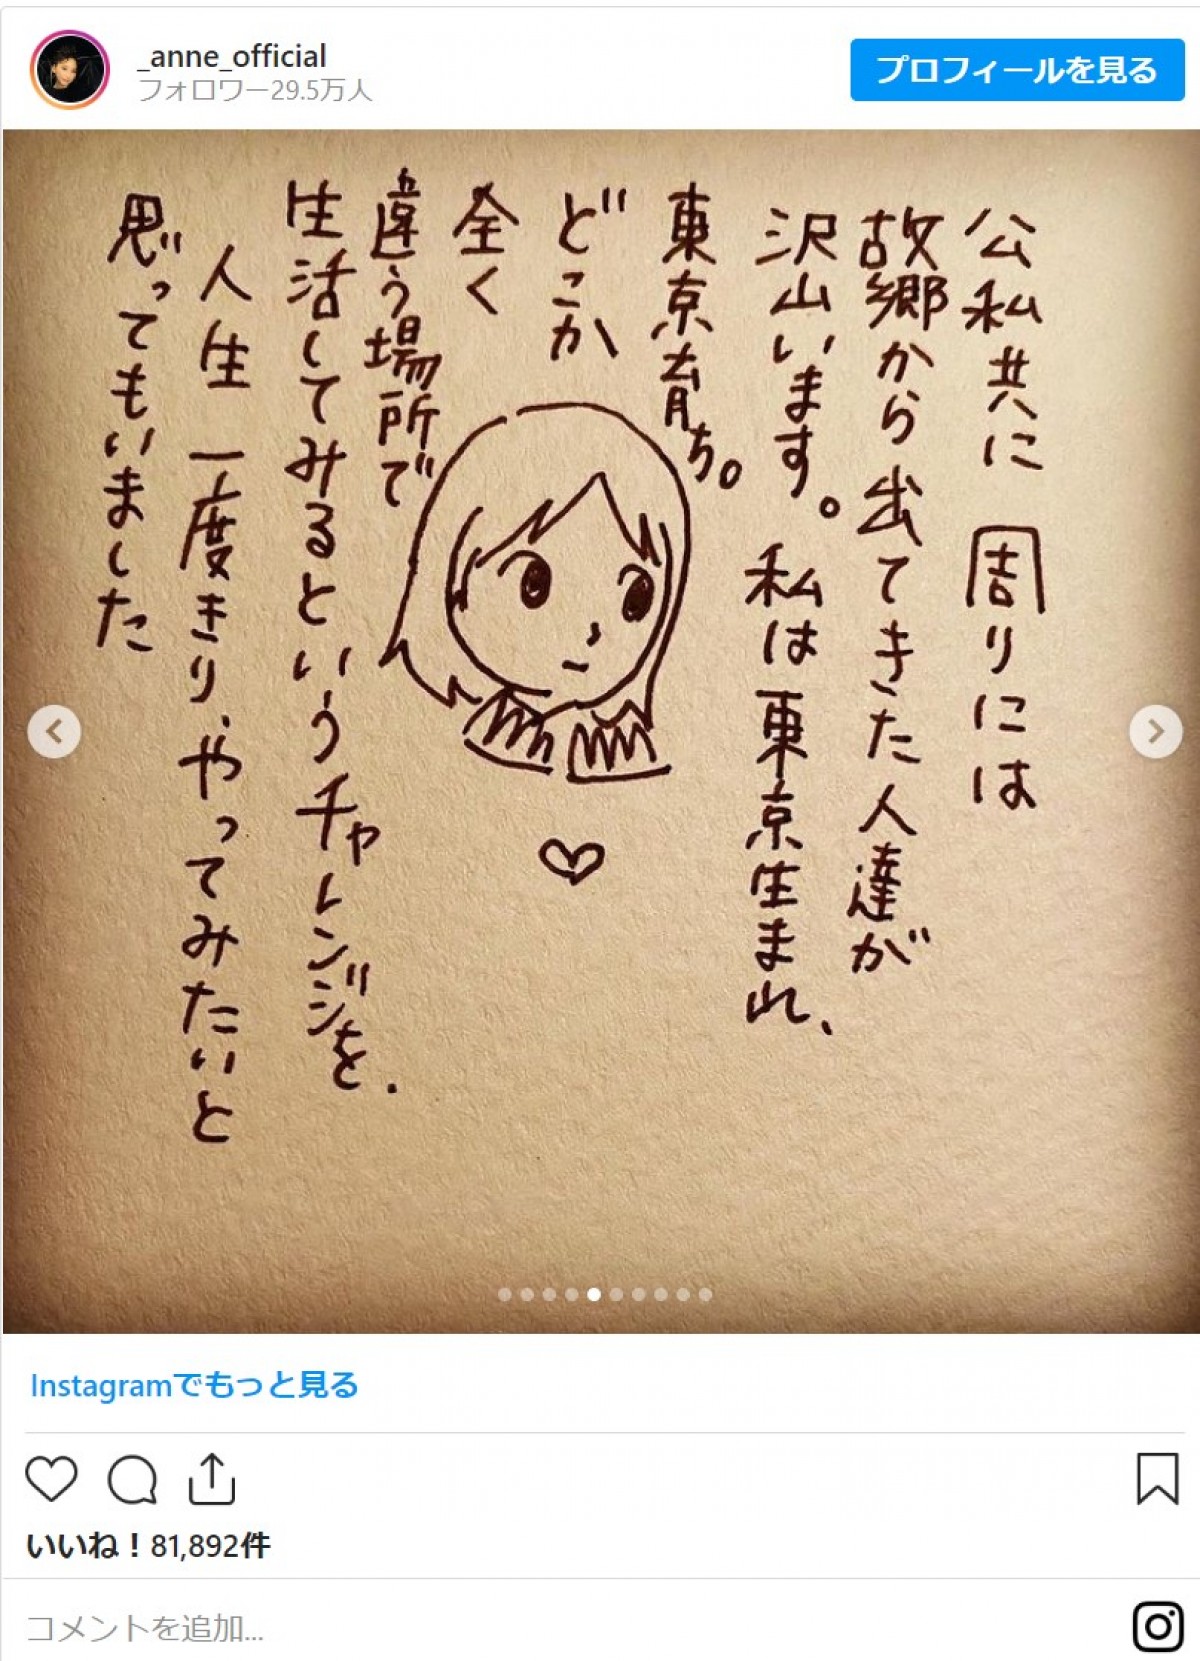 _anne_official
フォロワー29.5万人
プロフィールを見る
公私共に 周りには
故郷から出てきた人達が
沢山います。私は東京生まれ、
東京育ち。
どこか
全く
違う場所で
生活してみるというチャレンジを.
人生 一度きり、やってみたいと
思ってもいました
Instagramでもっと見る
いいね！81,892件
コメントを追加...